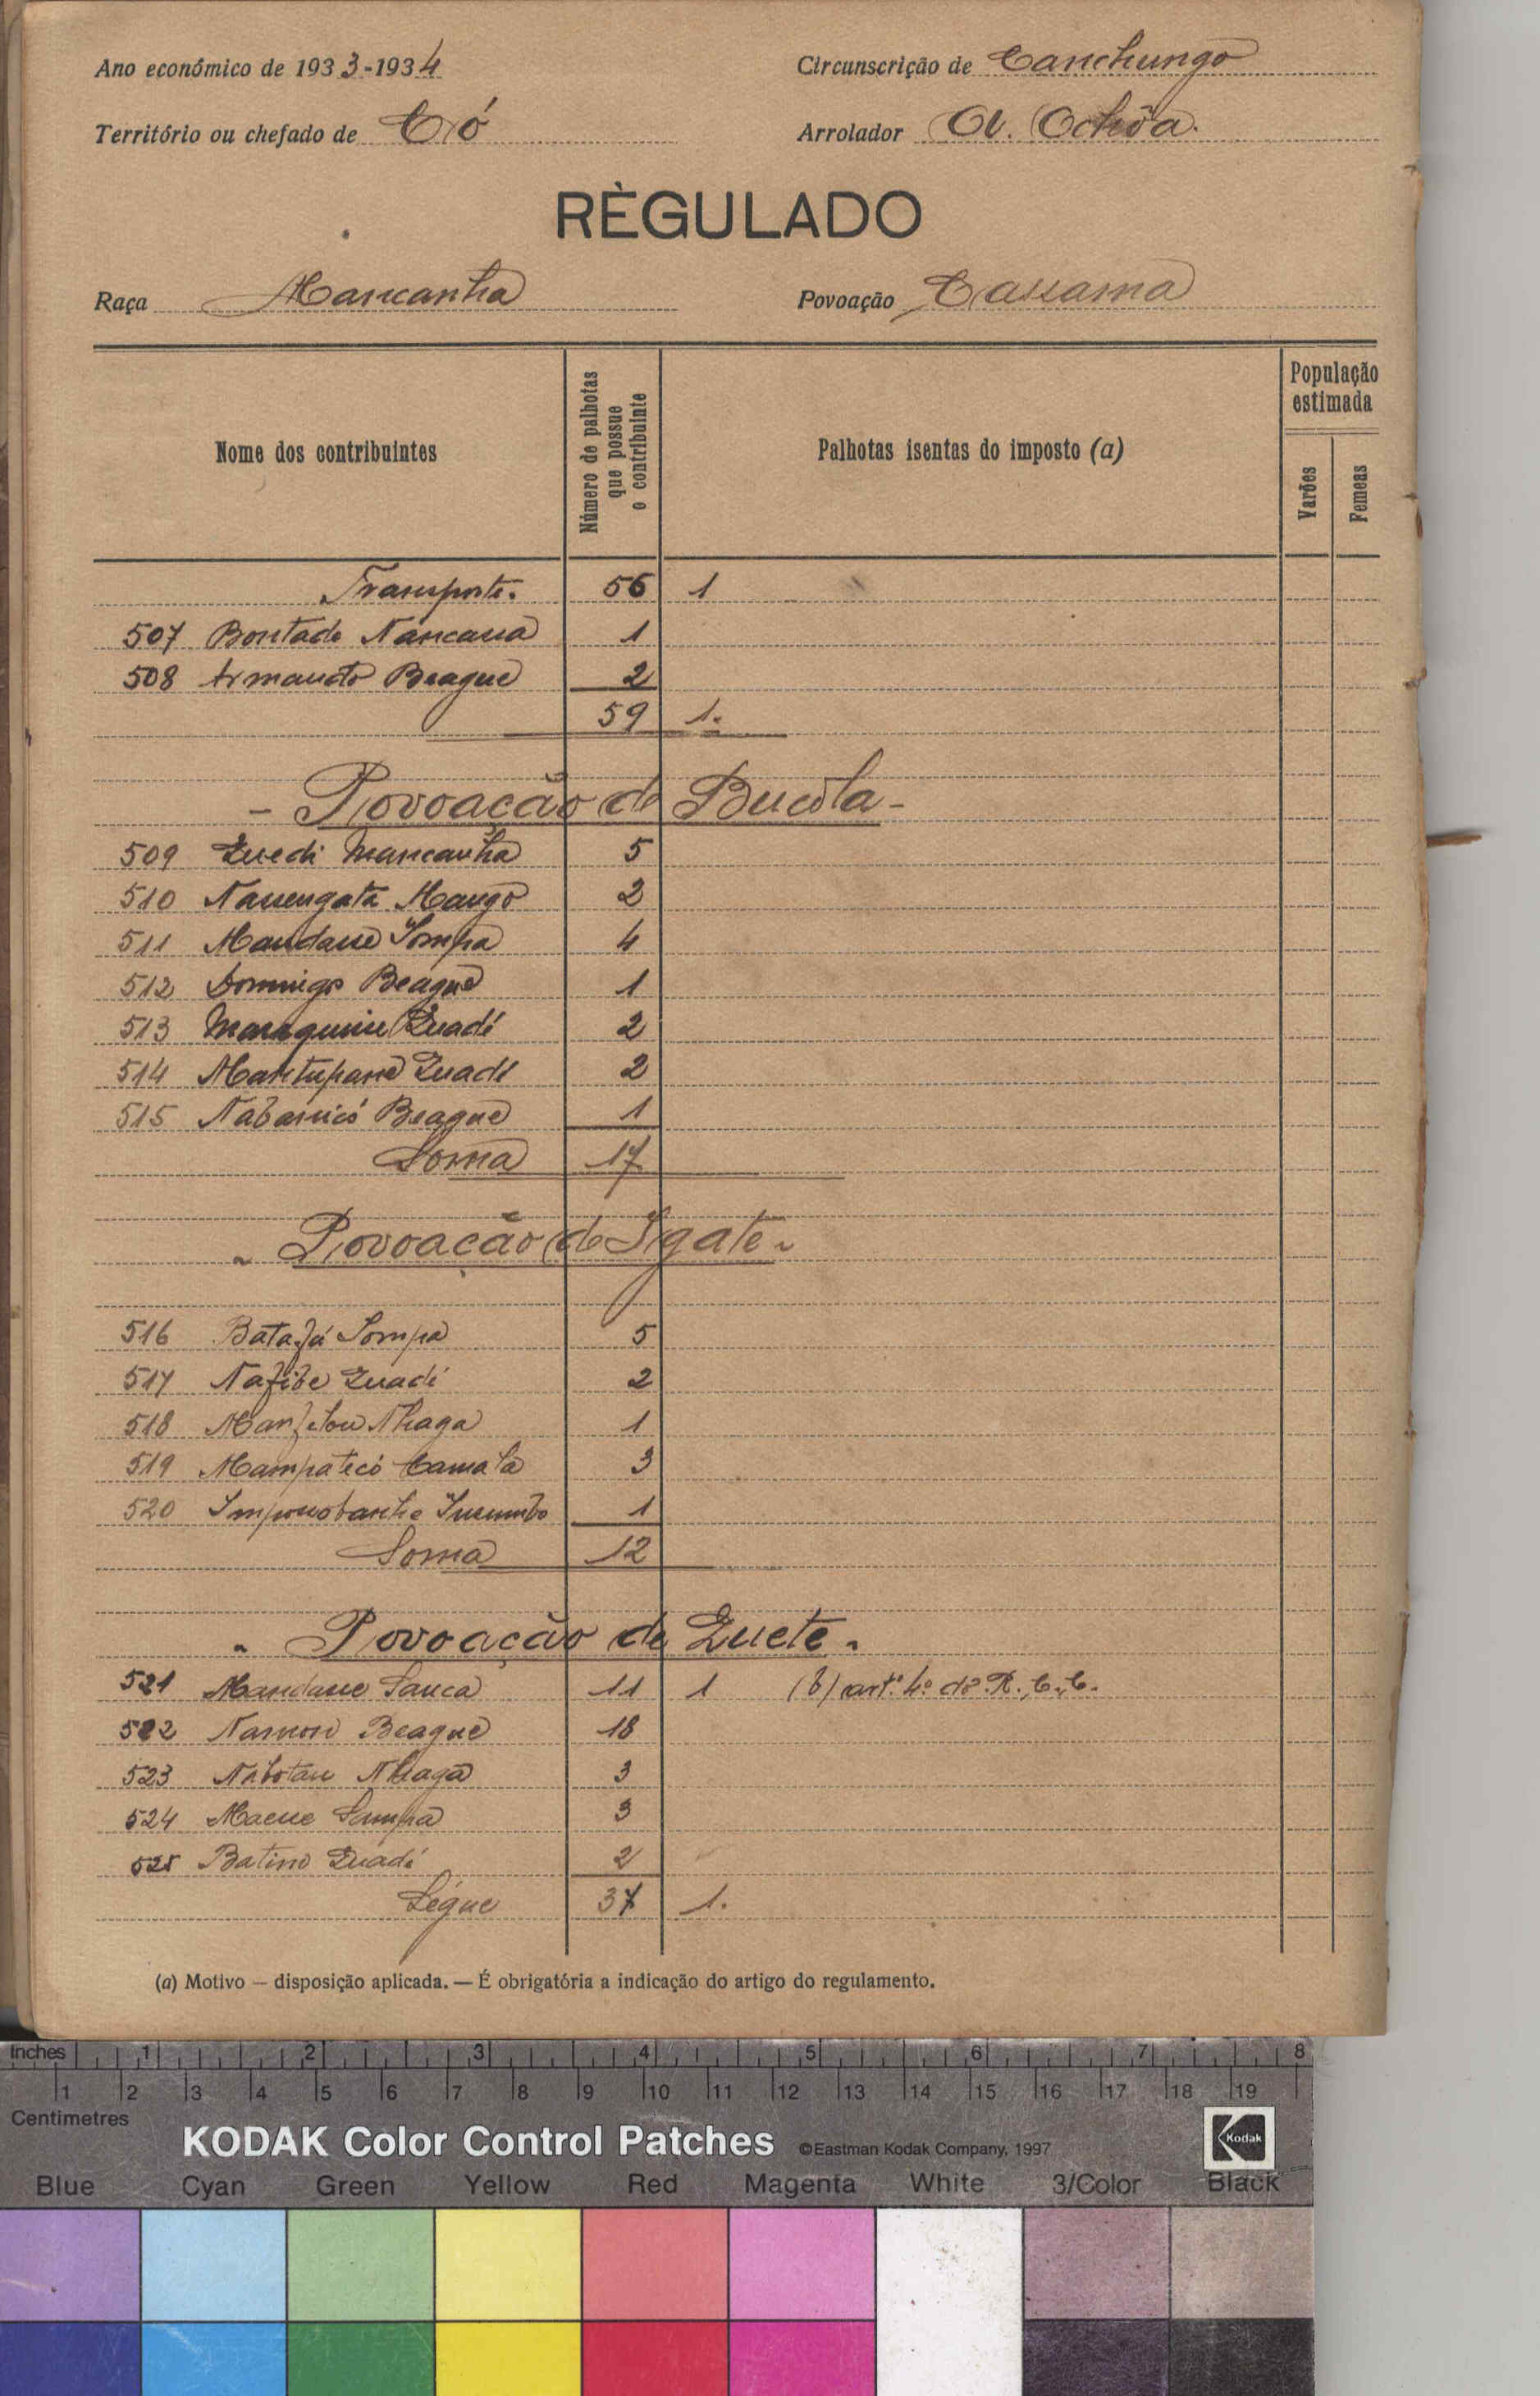 Ano económico de 1933-1934 Circunscrição de Canchungo
Território ou chefado de Có Arrolador A. Ochôa.
RÈGULADO
Raça Mancanha Povoação Cassama
Nome dos contribuintes
Número de palhotas que possue o contribuinte
Palhotas isentas do imposto (a)
População estimada
Varões
Femeas
Transporte. 56 1
507 Bontade 1
508 Armando Beague 2
59 1.
- Povoação de Bucola -
509 Quedi Mancanha 5
510 Mango 2
511 Mandane Sompa 4
512 Domingo Beague 1
513 Quadi 2
514 Mantupane Quadi 2
515 Beague 1
Soma 17
- Povoação de Igate -
516 Batafá Sompa 5
517 Nafibe Quadi 2
518 Nhaga 1
519 Mampatecó Camala 3
520 1
Soma 12
- Povoação de Quete -
521 Mandane Sanca 11 1 (b) artº 4º do R. C. C.
522 Namon Beague 18
523 Nhaga 3
524 Macue Sampa 3
525 Batino Quadi 2
Ségue 37 1.
(a) Motivo — disposição aplicada. — É obrigatória a indicação do artigo do regulamento.
Inches 1 2 3 4 5 6 7 8
1 2 3 4 5 6 7 8 9 10 11 12 13 14 15 16 17 18 19
Centimetres
KODAK Color Control Patches ©Eastman Kodak Company, 1997 Kodak
Blue Cyan Green Yellow Red Magenta White 3/Color Black